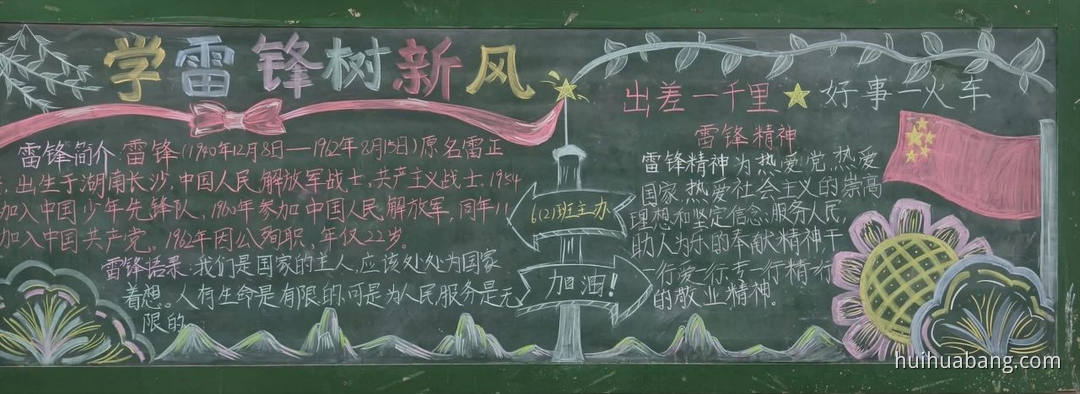 学雷锋树新风
雷锋简介:雷锋(1940年12月8日——1962年8月15日)原名雷正
,出生于湖南长沙,中国人民解放军战士,共产主义战士,1954
加入中国少年先锋队,1960年参加中国人民解放军,同年11
加入中国共产党。1962年因公殉职,年仅22岁。
雷锋语录:我们是国家的主人,应该处处为国家
着想。人有生命是有限的,可是为人民服务是无
限的
6(2)班主办
加油!
出差一千里★好事一火车
雷锋精神
雷锋精神为热爱党,热爱
国家,热爱社会主义的崇高
理想和坚定信念;服务人民,
助人为乐的奉献精神干
一行爱一行专一行精一行
的敬业精神。
huihuabang.com